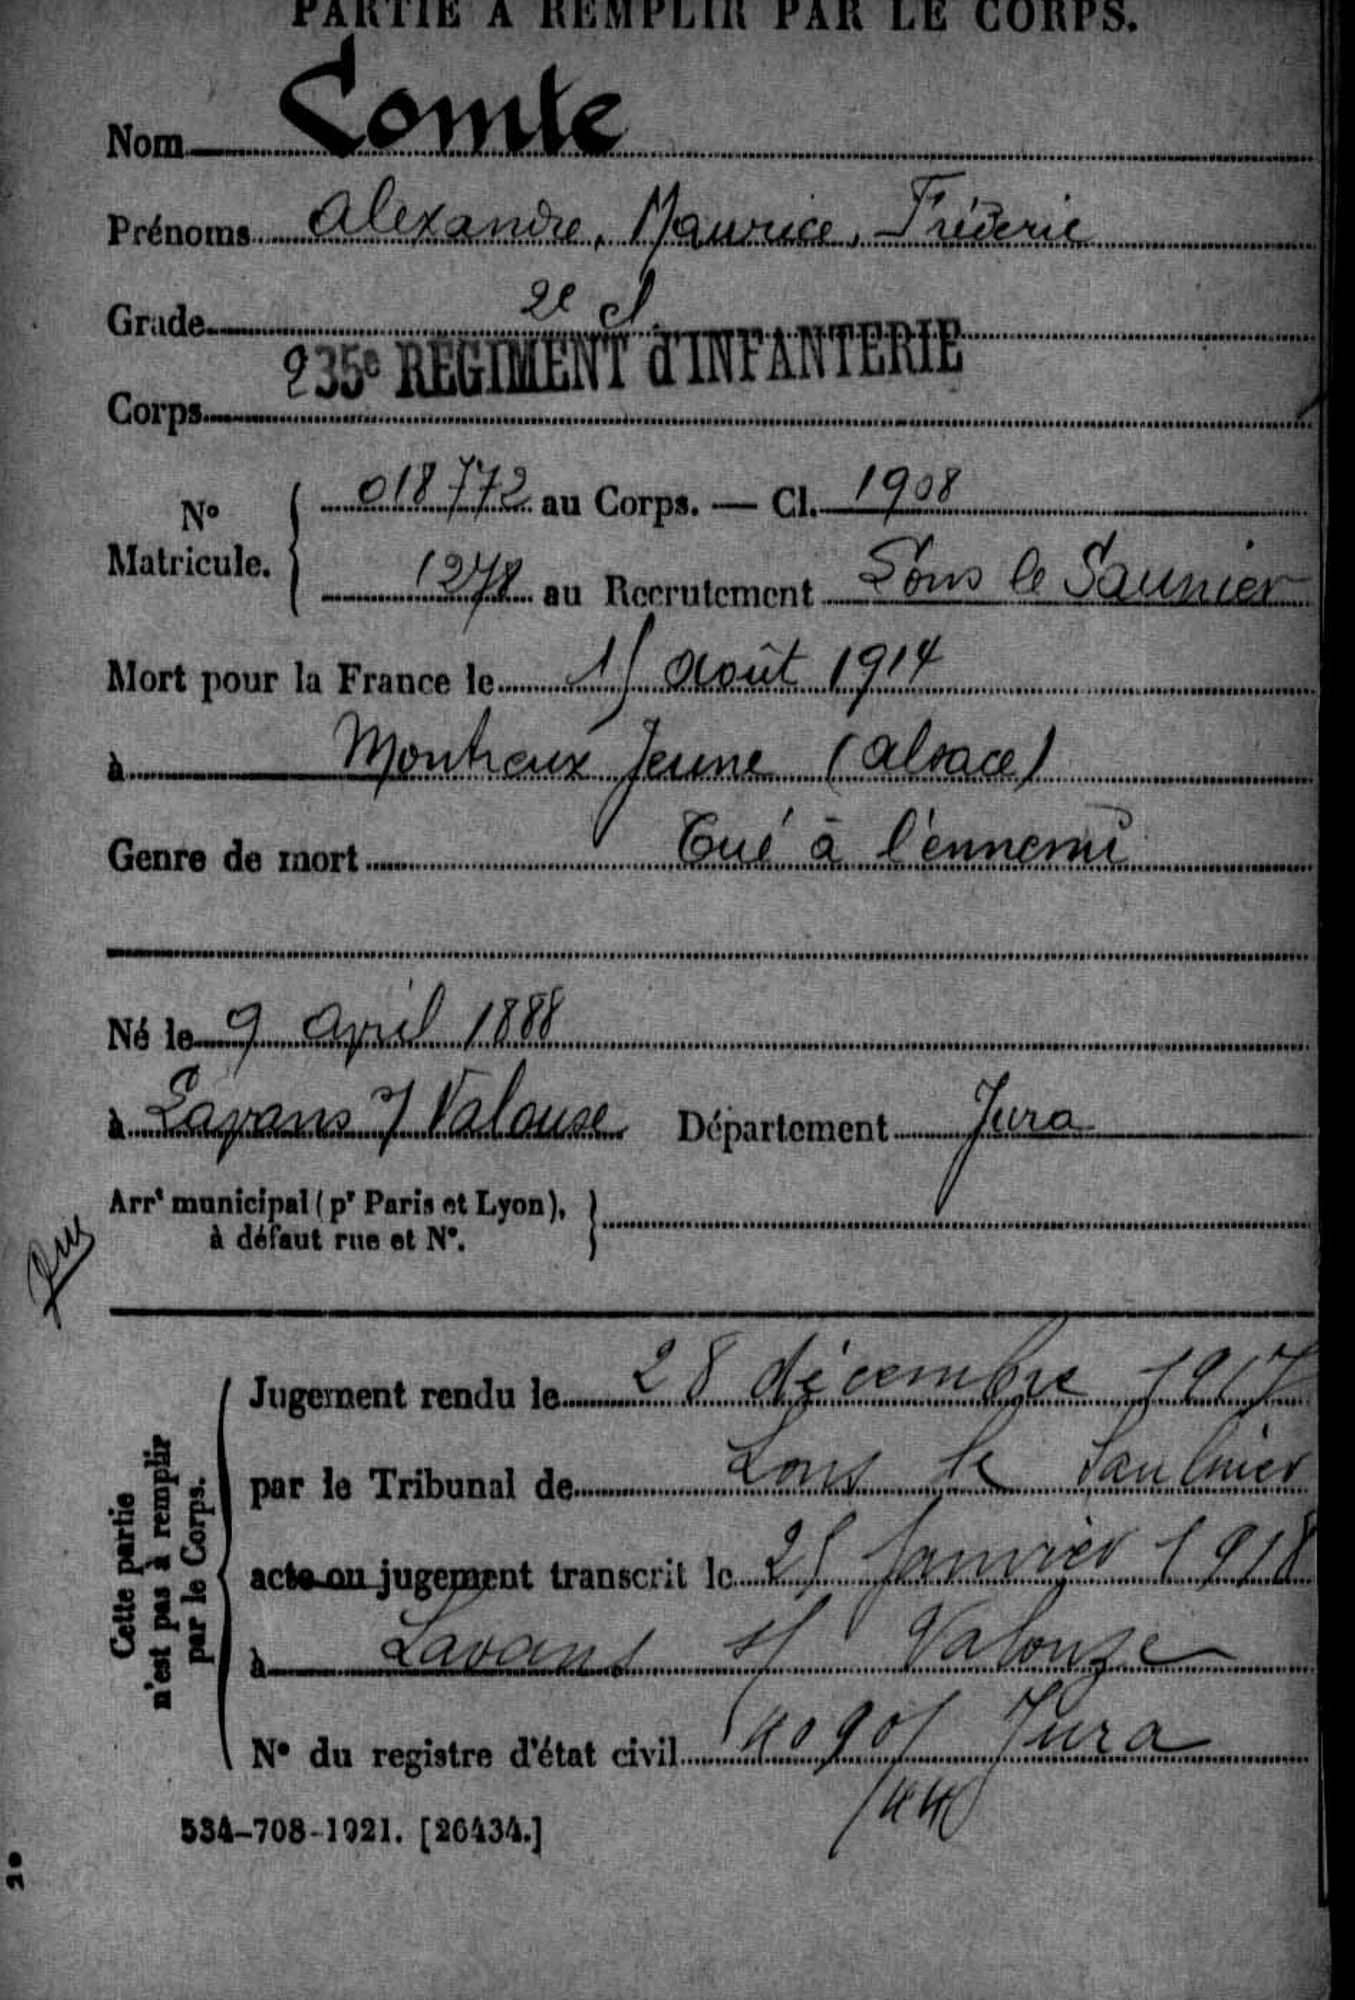 PARTIE À REMPLIR PAR LE CORPS.
Nom Comte
Prénoms Alexandre, Maurice, Fréderic
Grade 2e cl.
235e REGIMENT d'INFANTERIE
Corps
No Matricule. 018772 au Corps. — Cl. 1908
1278 au Recrutement Lons le Saunier
Mort pour la France le 15 août 1914
à Montreux Jeune (Alsace)
Genre de mort Tué à l'ennemi
Né le 9 avril 1888
à Lavans s/ Valouse Département Jura
Arrt municipal (pr Paris et Lyon), à défaut rue et No.
Cette partie n'est pas à remplir par le Corps.
Jugement rendu le 28 décembre 1917
par le Tribunal de Lons le Saulnier
acte ou jugement transcrit le 25 janvier 1918
à Lavans s/ Valouze
No du registre d'état civil Jura
534-708-1921. [26434.]